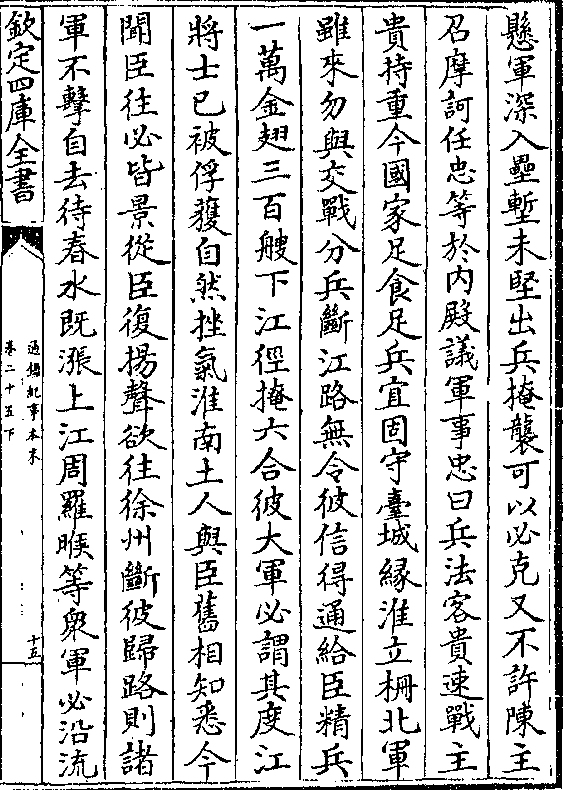 懸軍深入壘塹未堅出兵掩襲可以必克又不許陳主
召摩訶任忠等於内殿議軍事忠曰兵法客貴速戰主
貴持重今國家足食足兵宜固守臺城緣淮立柵北軍
雖來勿與交戰分兵斷江路無令彼信得通給臣精兵
一萬金翅三百艘下江徑掩六合彼大軍必謂其度江
將士已被俘獲自然挫氣淮南土人與臣舊相知悉今
聞臣往必皆景從臣復揚聲欲往徐州斷彼歸路則諸
軍不擊自去待春水既漲上江周羅睺等衆軍必沿流
欽定四庫全書
通鑑紀事本末
卷二十五下
十五